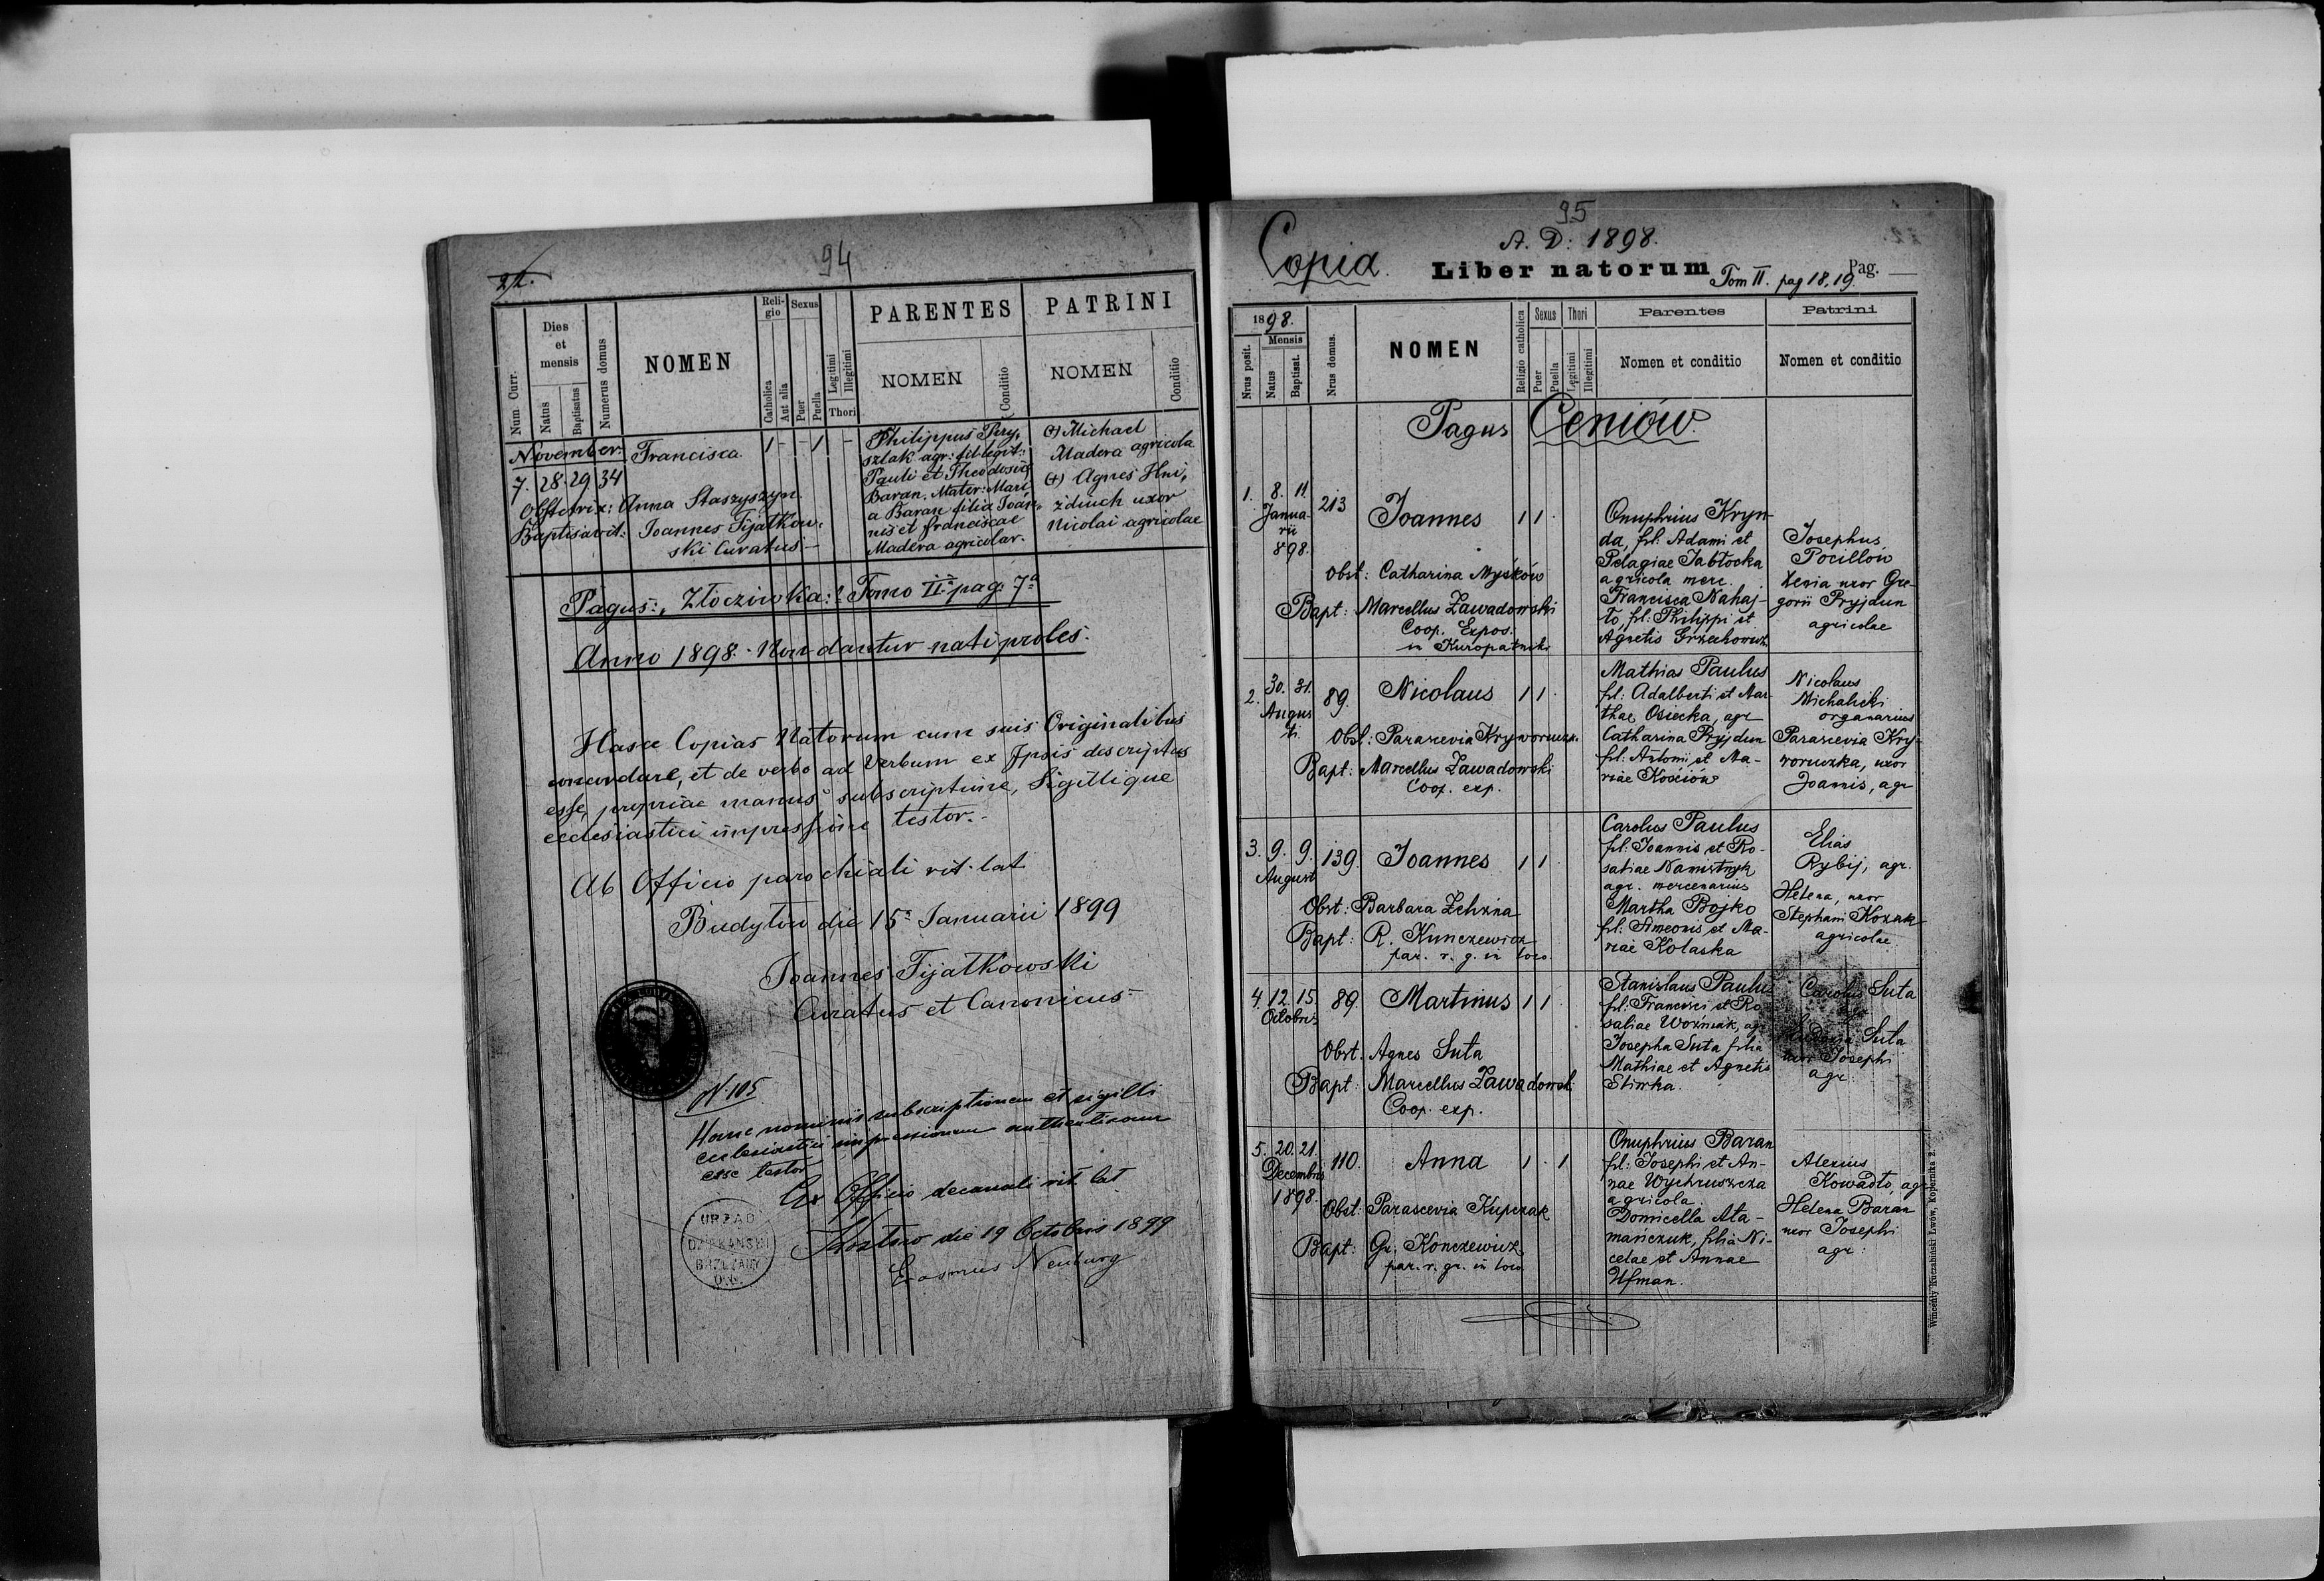 94
22.
Num. Curr.
Dies
et
mensis
Natus
Baptisatus
Numerus domus
NOMEN
Reli-
gio
Catholica
Aut alia
Sexus
Puer
Puella
Legitimi
Illegitimi
Thori
PARENTES
NOMEN
Conditio
PATRINI
NOMEN
Conditio
November.
7. 28. 29. 34
Francisca
1 - - 1 -
Obstetrix: Anna Staszyszyn
Baptisavit: Joannes Fijałkow-
ski Curatus.-
Philippus Pry-
szlak agr: fil: legit:
Pauli et Theodosiae
Baran. Mater: Mari
a Baran filia Joan-
nis et Franciscae
Madera agricolar.
(+) Michael
Madera agricola
(+) Agnes Hni-
zdiuch uxor
Nicolai agricolae
Pagus: Złocziwka: Tomo II. pag. 7a
Anno 1898. Non dantur nati proles.
Hasce Copias Natorum cum suis Originalibus
concordare, et de verbo ad Verbum ex Ipsis descriptas
esse, propriae manus subscriptione, Sigillique
ecclesiastici impressione testor.-
Ab Officio parochiali rit. lat
Budyłów die 15a Januarii 1899
Joannes Fijałkowski
Curatus et Canonicus
N. 105
Hanc nominis subscriptionem et sigilli
ecclesiastici impressionem authenticam
esse testor
Ex Officio decanali rit. lat
die 19 Octobris 1899
Erasmus Neuburg
URZĄD
DZIEKAŃSKI
BRZEŻANY
O.Ł.
95
Copia.
A. D: 1898.
Liber natorum Tom II. pag 18, 19. Pag.
1898.
Nrus posit.
Mensis
Natus
Baptisat.
Nrus domus.
NOMEN
Religio catholica
Sexus
Puer
Puella
Thori
Legitimi
Illegitimi
Parentes
Nomen et conditio
Patrini
Nomen et conditio
Pagus Ceniów.
1. 8. 11. 213 Joannes 1 1
Janua-
rii
898.
Obst: Catharina Myśków
Bapt: Marcellus Zawadowski
Coop. Expos.
in Kuropatnik
Onuphrius Kryn-
da, fil: Adami et
Pelagiae Jabłocka
agricola merc.
Francisca Nahaj-
ło, fil: Philippi et
Agnetis Grzechowicz
Josephus
Pociłłów
Xenia uxor Gre-
gorii Pryjdun
agricolae
2. 30. 31. 89. Nicolaus 1 1
Augus
ti.
Obst: Parascevia Kryworuczk.
Bapt: Marcellus Zawadowski
Coop. exp.
Mathias Paulus
fil: Adalberti et Mar-
thae Osiecka, agr
Catharina Pryjdun
fil: Antonii et Ma-
riae Kościów
Nicolaus
Michalicki
organarius
Parascevia Kry-
woruczka, uxor
Joannis, agr
3. 9. 9. 139. Joannes 1 1
August
Obst: Barbara Zelizna
Bapt: R. Kunczewicz
par. r. g. in loco.
Carolus Paulus
fil: Joannis et Ro-
saliae Namistnyk
agr. mercenarius
Martha Bojko
fil: Simeonis et Ma-
riae Kolaska
Elias
Rybij, agr.
Helena, uxor
Stephani Kozak
agricolae
4. 12. 15. 89. Martinus 1 1
Octobris
Obst. Agnes Suta
Bapt: Marcellus Zawadowski
Coop. exp.
Stanislaus Paulus
fil: Francisci et Ro-
saliae Woźniak, agr
Josepha Suta filia
Mathiae et Agnetis
Śliwka.
Carolus Suta
agr
Suta
uxor Josephi
agr:
5. 20. 21. 110. Anna 1 . 1
Decembris
1898.
Obst: Parascevia Kupczak
Bapt: Gr. Konczewicz
par. r. gr. in loco.
Onuphrius Baran
fil: Josephi et An-
nae Wychruszcza
agricola.
Domicella Ata-
mańczuk, filia Ni-
cetae et Annae
Ufman.
Alexius
Kowadło, agr
Helena Baran
uxor Josephi
agr:
Wincenty Kuczabiński Lwów, Kopernika 2.